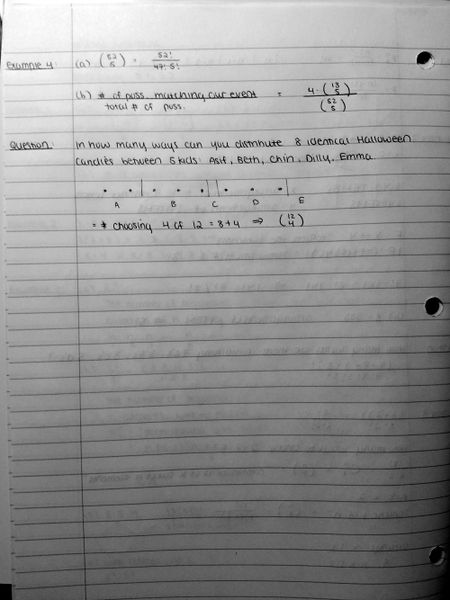 Example 4: (a) (52 5) = 52! / 47! 5!
(b) # of poss. matching our event / total # of poss. = 4 · (13 5) / (52 5)
Question: In how many ways can you distribute 8 identical Halloween
candies between 5 kids: Asif, Beth, Chin, Dilly, Emma.
• • | • • • | | • • • |
A B C D E
= # choosing 4 of 12 = 8+4 ⇒ (12 4)